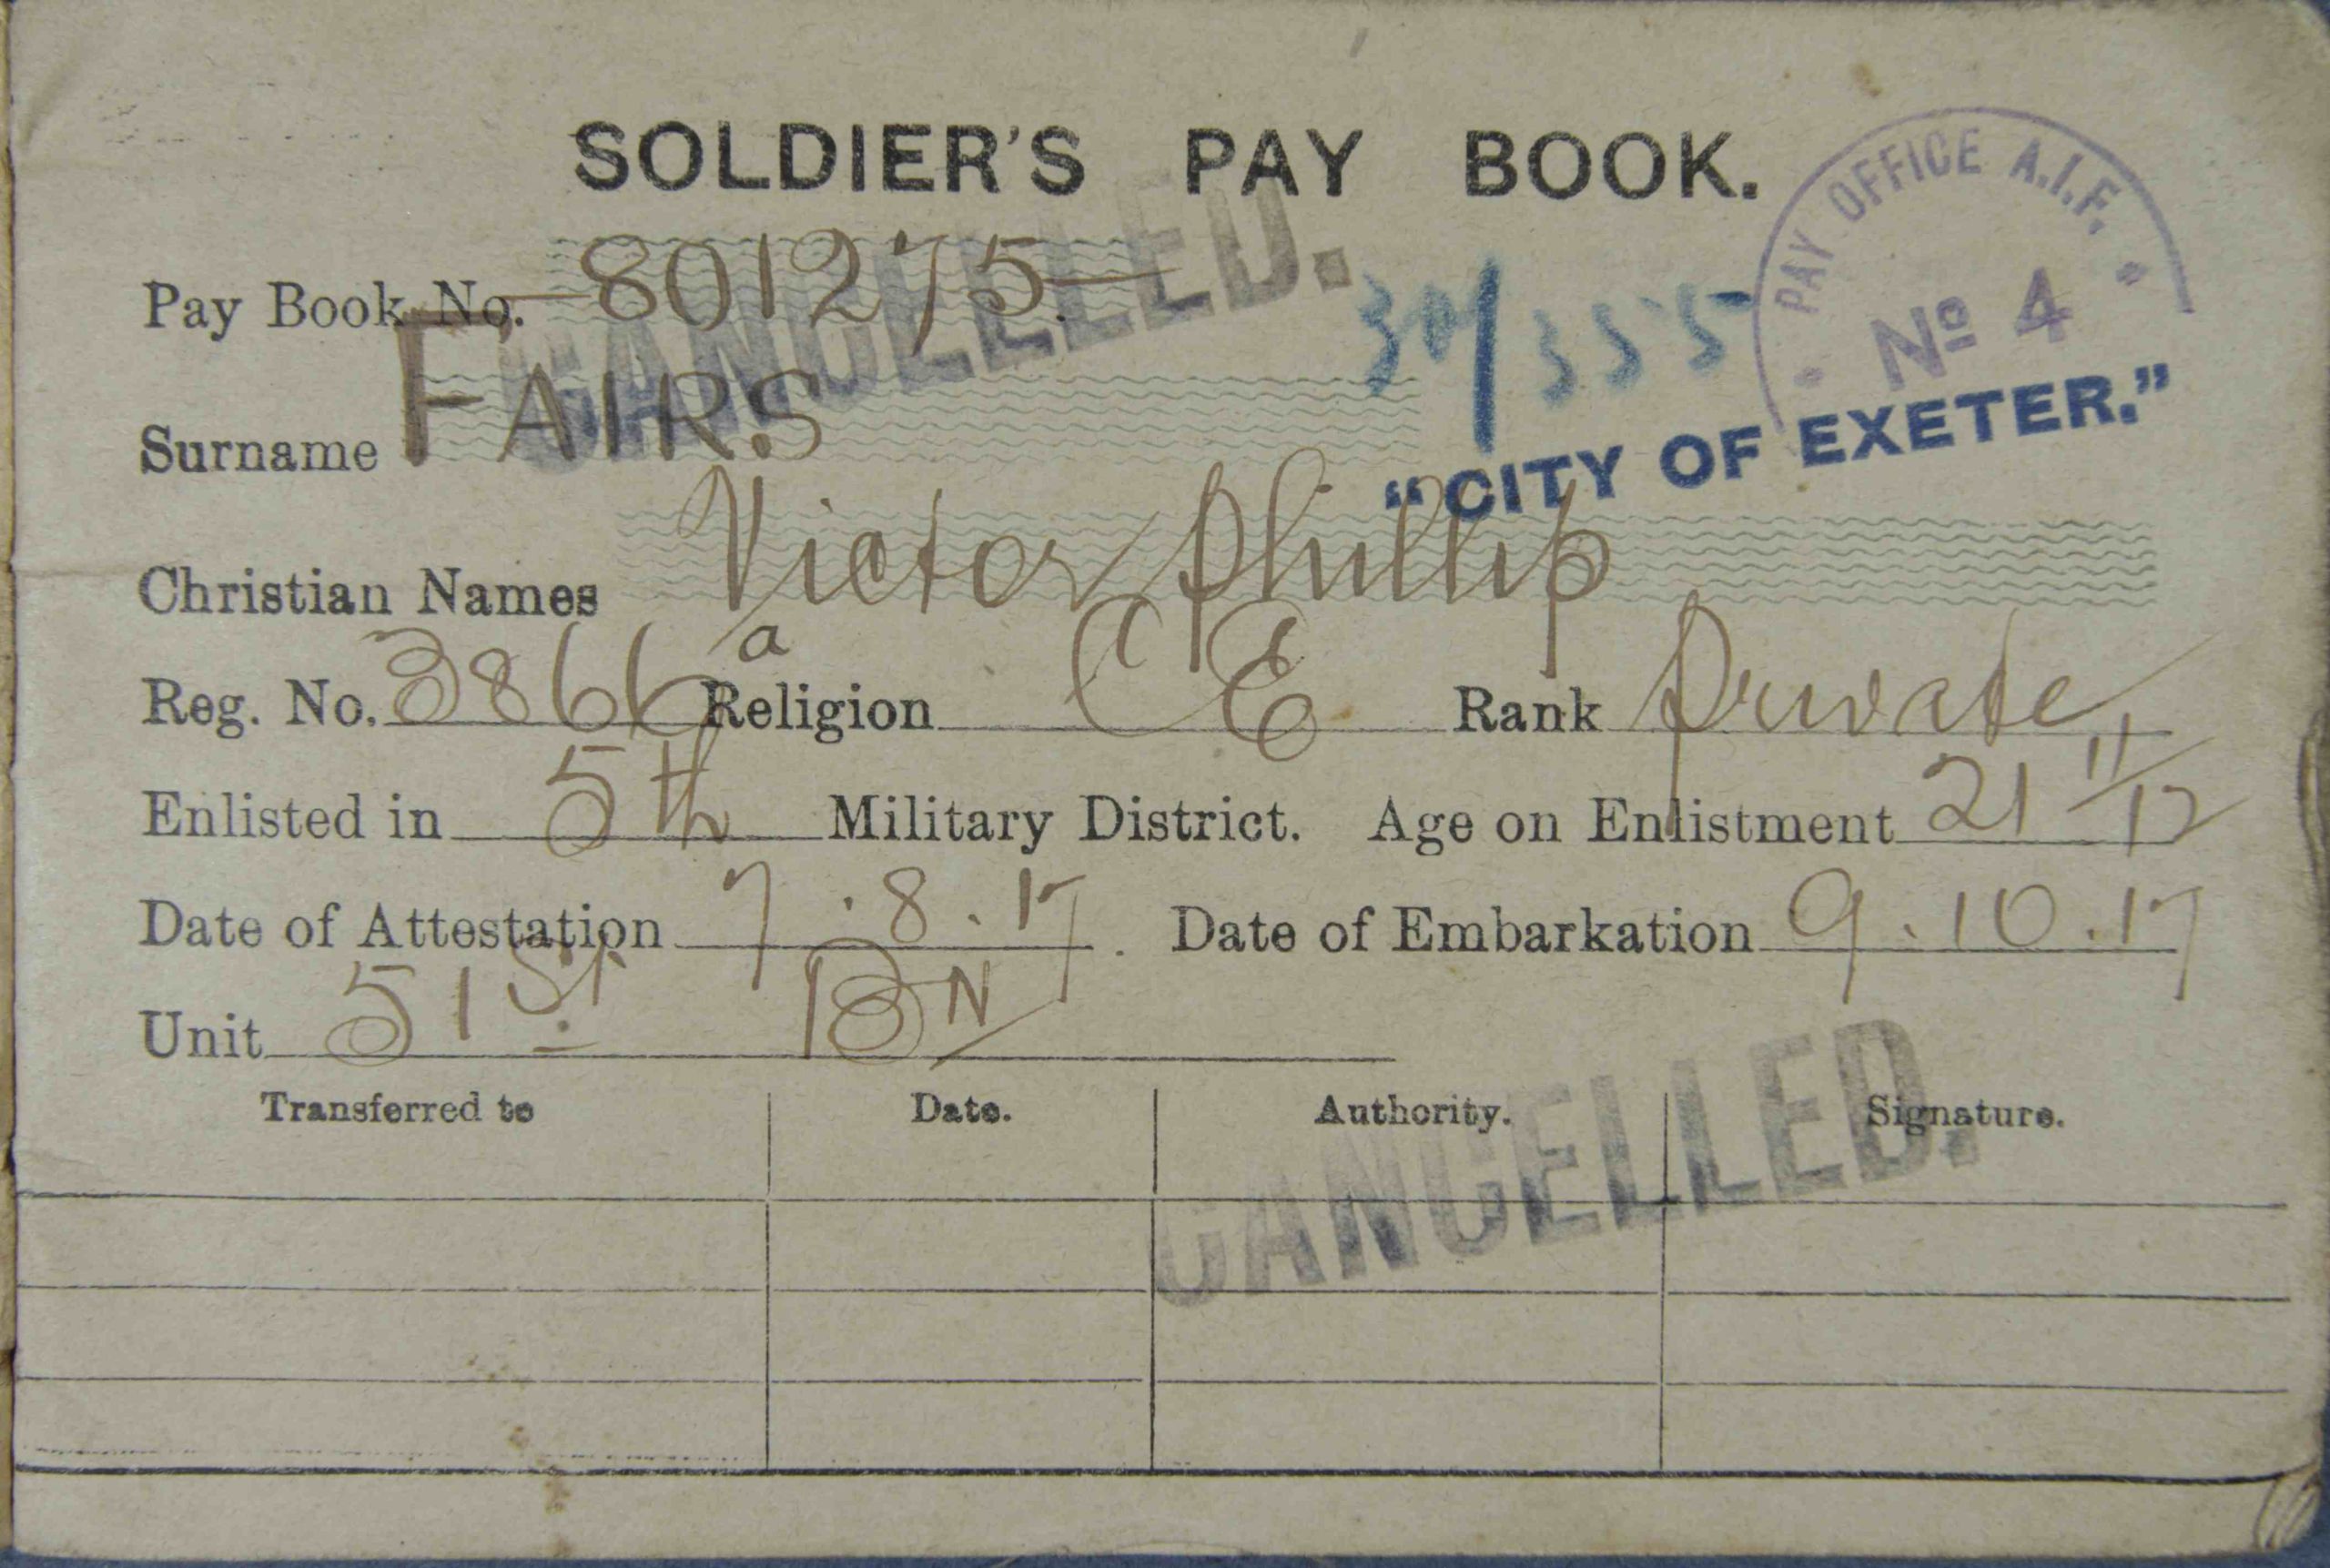 SOLDIER'S PAY BOOK.
PAY OFFICE A.I.F.
No 4
Pay Book No. 801275
CANCELLED.
30/355
"CITY OF EXETER."
Surname FAIRS
Christian Names Victor Phillip
Reg. No. 3866a Religion CE Rank Private
Enlisted in 5th Military District. Age on Enlistment 21 11/12
Date of Attestation 7.8.17. Date of Embarkation 9.10.17
Unit 51st BN
Transferred to Date. Authority. Signature.
CANCELLED.